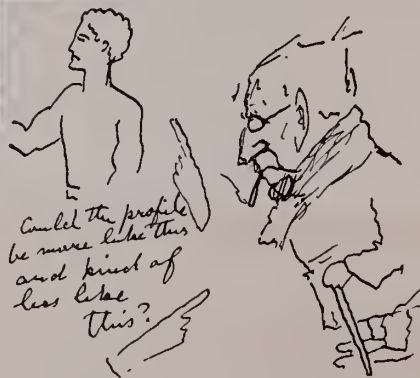 Could the profile
be more like this
and kind of
less like
this?